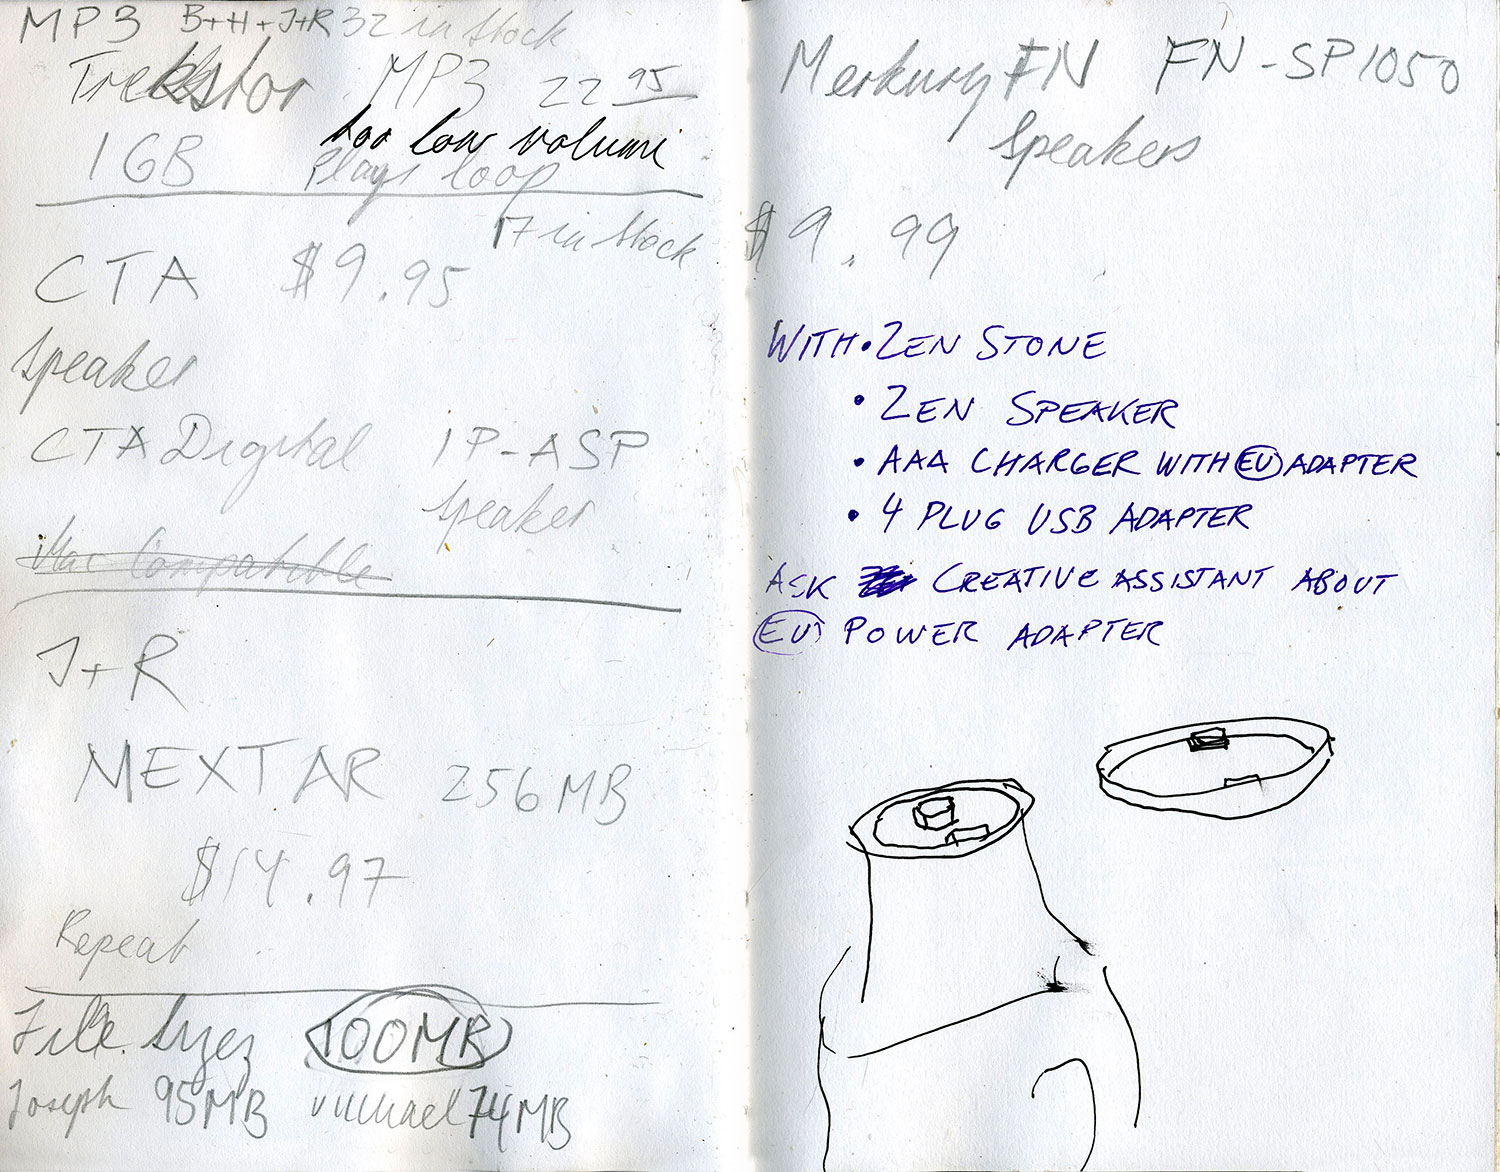 MP3 B+H+J+R 32 in stock
Trekstor MP3 22 95
too low volume
1GB plays loop
17 in stock
CTA $9.95
Speaker
CTA Digital IP-ASP
speaker
Mac Compatible
J+R
MEXTAR 256MB
$14.97
Repeat
File Syzes 100MB
Joseph 95MB Michael 74MB
Merkury FN FN-SP1050
Speakers
$9.99
WITH • ZEN STONE
• ZEN SPEAKER
• AAA CHARGER WITH EU ADAPTER
• 4 PLUG USB ADAPTER
ASK CREATIVE ASSISTANT ABOUT
EU POWER ADAPTER